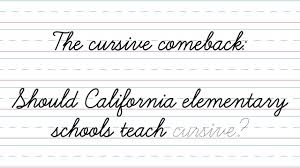 The cursive comeback:
Should California elementary
schools teach cursive?